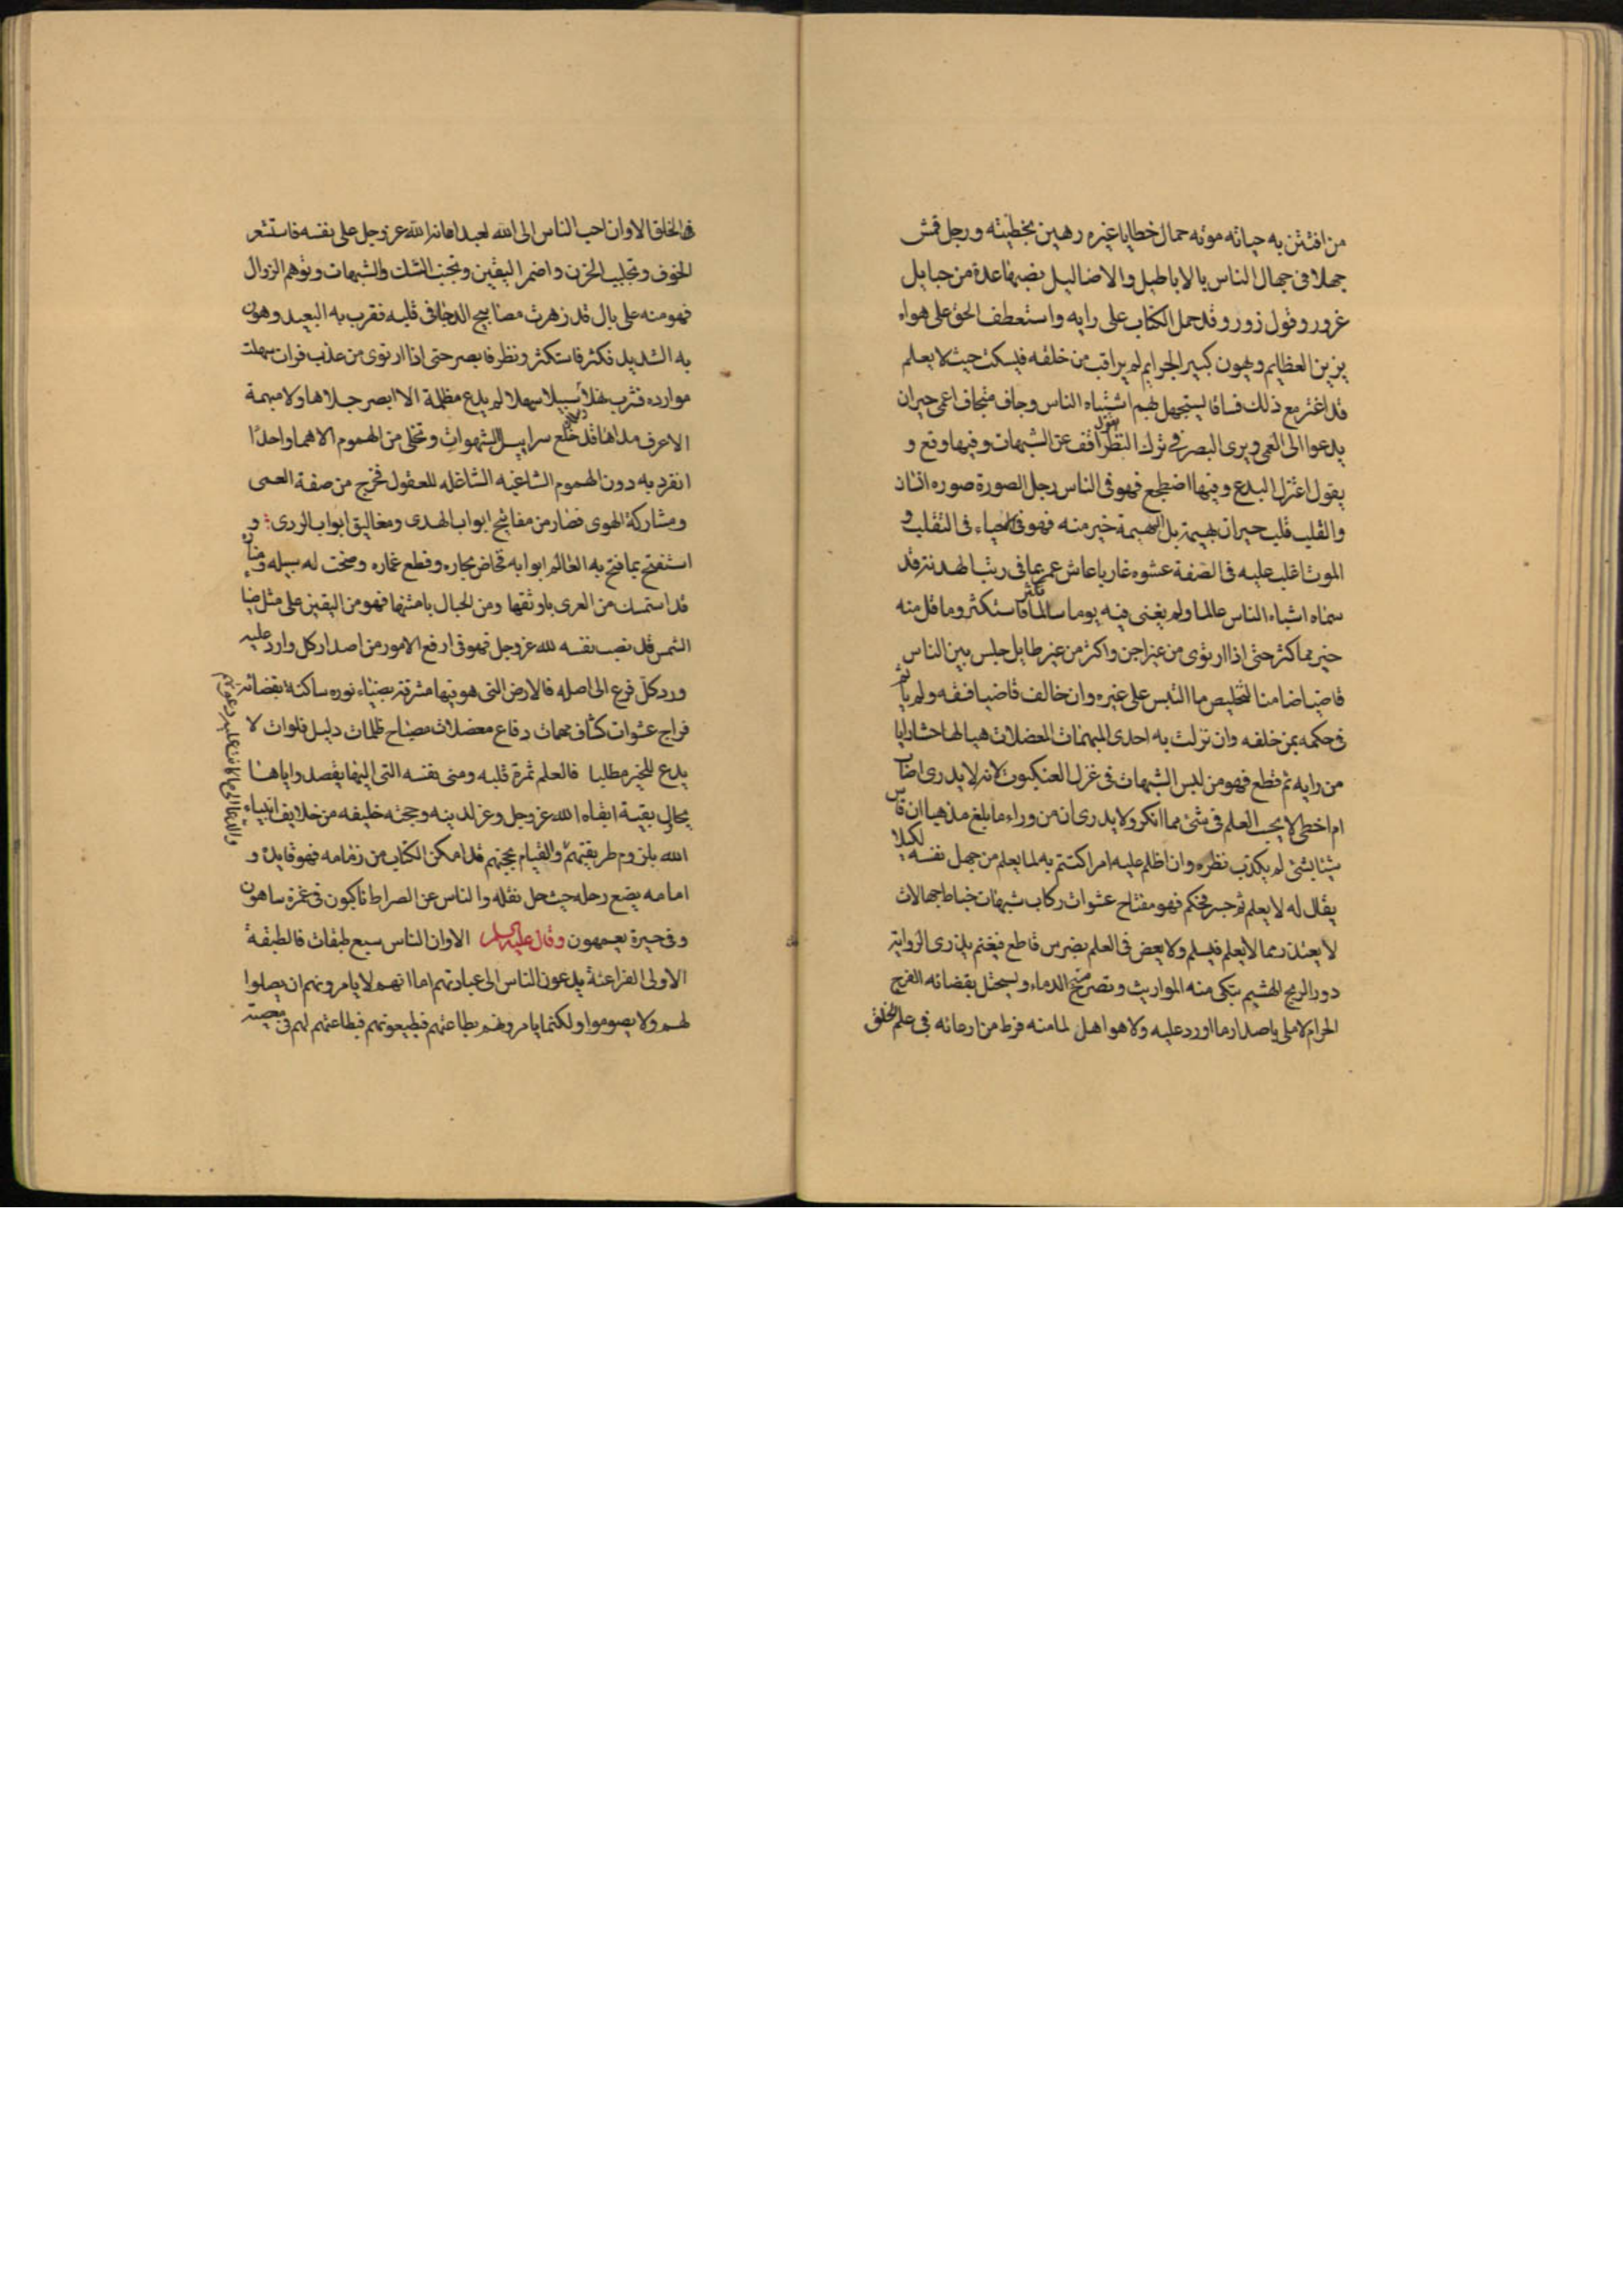 من افتتن به حياته موته حمال خطايا غيره رهين بخطيئته ورجل قمش
جهلا فى جهال الناس بالاباطيل والاضاليل نصبها عدة من حبايل
غرور وقول زور وقد حمل الكتاب على رايه واستعطف الحق على هواه
يزين العظايم ويهون كبير الجرايم لم يراقب من خلفه فيسكت حيث لا يعلم
قد اغتر مع ذلك فساقا ليستجهل بهم اشتباه الناس وجاف متجاف اعمى حيران
يدعوا الى العمى ويرى البصر فى ترك النظر يقول اقف عن الشبهات وفيها وقع و
يقول اعتزل البدع وفيها اضطجع فهو فى الناس رجل الصورة صوره انسان
والقلب قلب حيران بهيمة بل البهيمة خير منه فهو فى الاحياء فى التقلب و
الموت اغلب عليه فى الصفة عشوه غار باغاش عم بما فى ريب الهدنة قد
سماه اشباه الناس عالما ولم يغنى فيه يوما سالما بكر فاستكثر وما قل منه
خير مما كثر حتى اذا ارتوى من غير اجن واكثر من غير طايل جلس بين الناس
قاضيا ضامنا لتخليص ما التبس على غيره وان خالف قاضيا فقه ولم ياتم
فى حكمه بمن خلفه وان نزلت به احدى المبهمات المعضلات هيا لها حشا رايا
من رايه ثم قطع فهو من لبس الشبهات فى غزل العنكبوت لانه لا يدرى اصاب
ام اخطى لا يحب العلم فى شئ مما انكر ولا يدرى ان من وراء ما بلغ مذهبا ان قاس
شيئا بشئ لم يكذب نظره وان اظلم عليه امرا كتتم به لما يعلم من جهل نفسه لكيلا
يقال له لا يعلم ثم جسر فحكم فهو مفتاح عشوات ركاب شبهات خباط جهالات
لا يعتذر مما لا يعلم فيسلم ولا يعض فى العلم بضرس قاطع فيغنم يذرى الرواية
ذور الريح الهشيم تبكى منه المواريث وتصرخ منه الدماء ويستحل بقضائه الفرج
الحرام لا ملى باصدار ما اورد عليه ولا هو اهل لما منه فرط من ادعائه فى علم الخلق
فى الخلق الا وان احب الناس الى الله لعبد اعانه الله عز وجل على نفسه فاستشعر
الخوف وتجلبب الحزن واضمر اليقين وتجنب الشك والشبهات وتوهم الزوال
فهو منه على بال قد زهرت مصابيح الدجا فى قلبه فقرب به البعيد وهون
به الشديد فكثر فاستكثر ونظر فابصر حتى اذا ارتوى من عذب فرات سهلت
موارده فشرب نهلا سبيلا سهلا لم يدع مظلمة الا ابصر جلاها ولا مبهمة
الا عرف مداها قد خلع سرابيل الشهوات وتخلى من الهموم الا هما واحدا
انفرد به دون الهموم الشاغبه الشاغله للعقول فخرج من صفة العمى
ومشاركة الهوى فصار من مفاتيح ابواب الهدى ومغاليق ابواب الردى و
استفتح بما فتح به العالم ابوابه فخاض بحاره وقطع غماره وضحت له سبيله ومناره
قد استمسك من العرى باوثقها ومن الحبال بامتنها فهو من اليقين على مثل ضيا
الشمس قد نصب نفسه لله عز وجل فهو فى ارفع الامور من اصدار كل وارد عليه
ورد كل فرع الى اصله فالارض التى هو فيها مشرقة بضياء نوره ساكنة بقضائه
فراج عشوات كشاف مبهمات دفاع معضلات مصباح ظلمات دليل فلوات لا
يدع للخير مطلبا فالعلم ثمرة قلبه ومنى نفسه التى اليها يقصد واياها
يحاول بقية ابقاه الله عز وجل وعز لدينه وحجته خليفه من خلايف انبياء
الله بلزوم طريقتهم والقيام بحجتهم قد امكن الكتاب من زمامه فهو قايده و
امامه يضع رحله حيث حل نقله والناس عن الصراط ناكبون فى غمرة ساهون
وفى حيرة يعمهون وقال عليه السلم الا وان الناس سبع طبقات فالطبقة
الاولى الفراعنة يدعون الناس الى عبادتهم اما انهم لا يامرونهم ان يصلوا
لهم ولا يصوموا ولكنما يامرونهم بطاعتهم فيطيعونهم فبطاعتهم لهم فى معصية